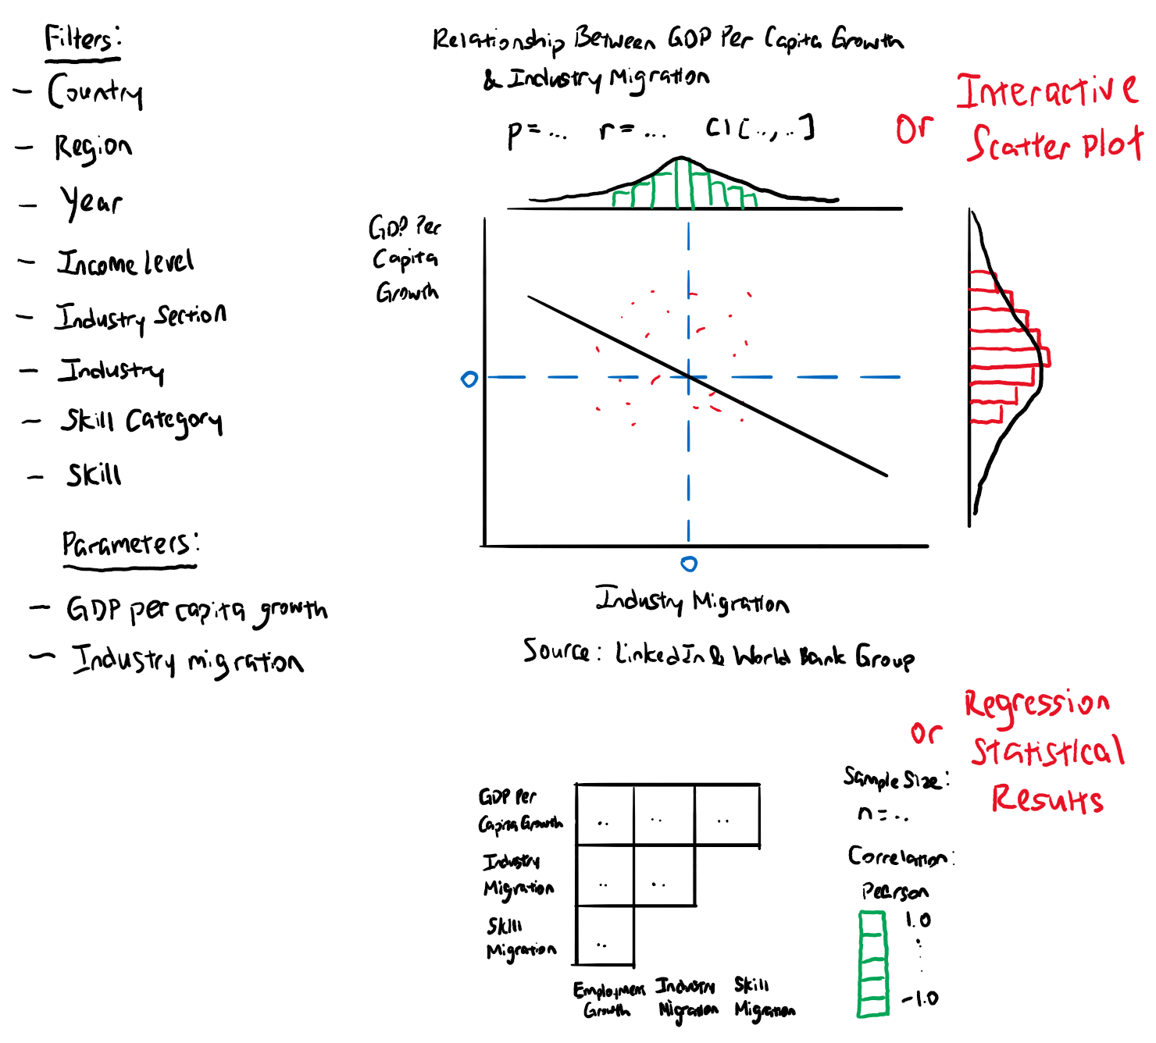 Filters:
- Country
- Region
- Year
- Income level
- Industry Section
- Industry
- Skill Category
- Skill
Parameters:
- GDP per capita growth
- Industry migration
Relationship Between GDP Per Capita Growth
& Industry Migration
p=... r=... CI[..,..]
Or Interactive
Scatter Plot
GDP Per
Capita
Growth
0
0
Industry Migration
Source: LinkedIn & World Bank Group
Or Regression
Statistical
Results
GDP Per
Capita Growth
.. .. ..
Industry
Migration
.. ..
Skill
Migration
..
Employment
Growth
Industry
Migration
Skill
Migration
Sample Size:
n=..
Correlation:
Pearson
1.0
-1.0